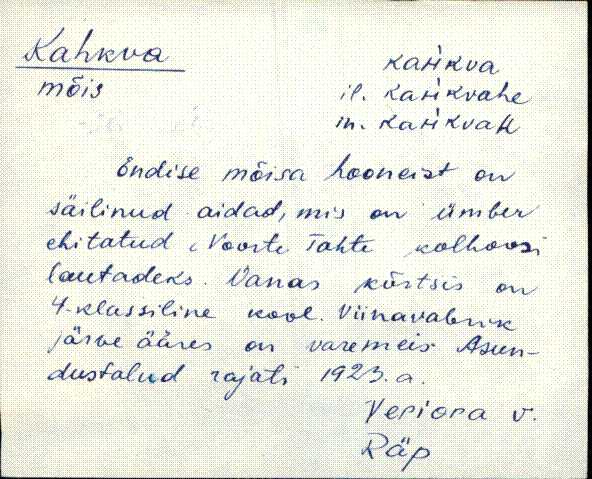 Kahkva
mõis
kaH̀kva
il. kaH̀kvahe
in. kaH̀kvaH
Endise mõisa hooneist on
säilinud aidad, mis on ümber
ehitatud "Noorte Tahte kolhoosi
lautadeks. Vanas kõrtsis on
4-klassiline kool. Viinavabrik
järve ääres on varemeis. Asun-
dustalud rajati 1923. a.
Veriora v.
Räp